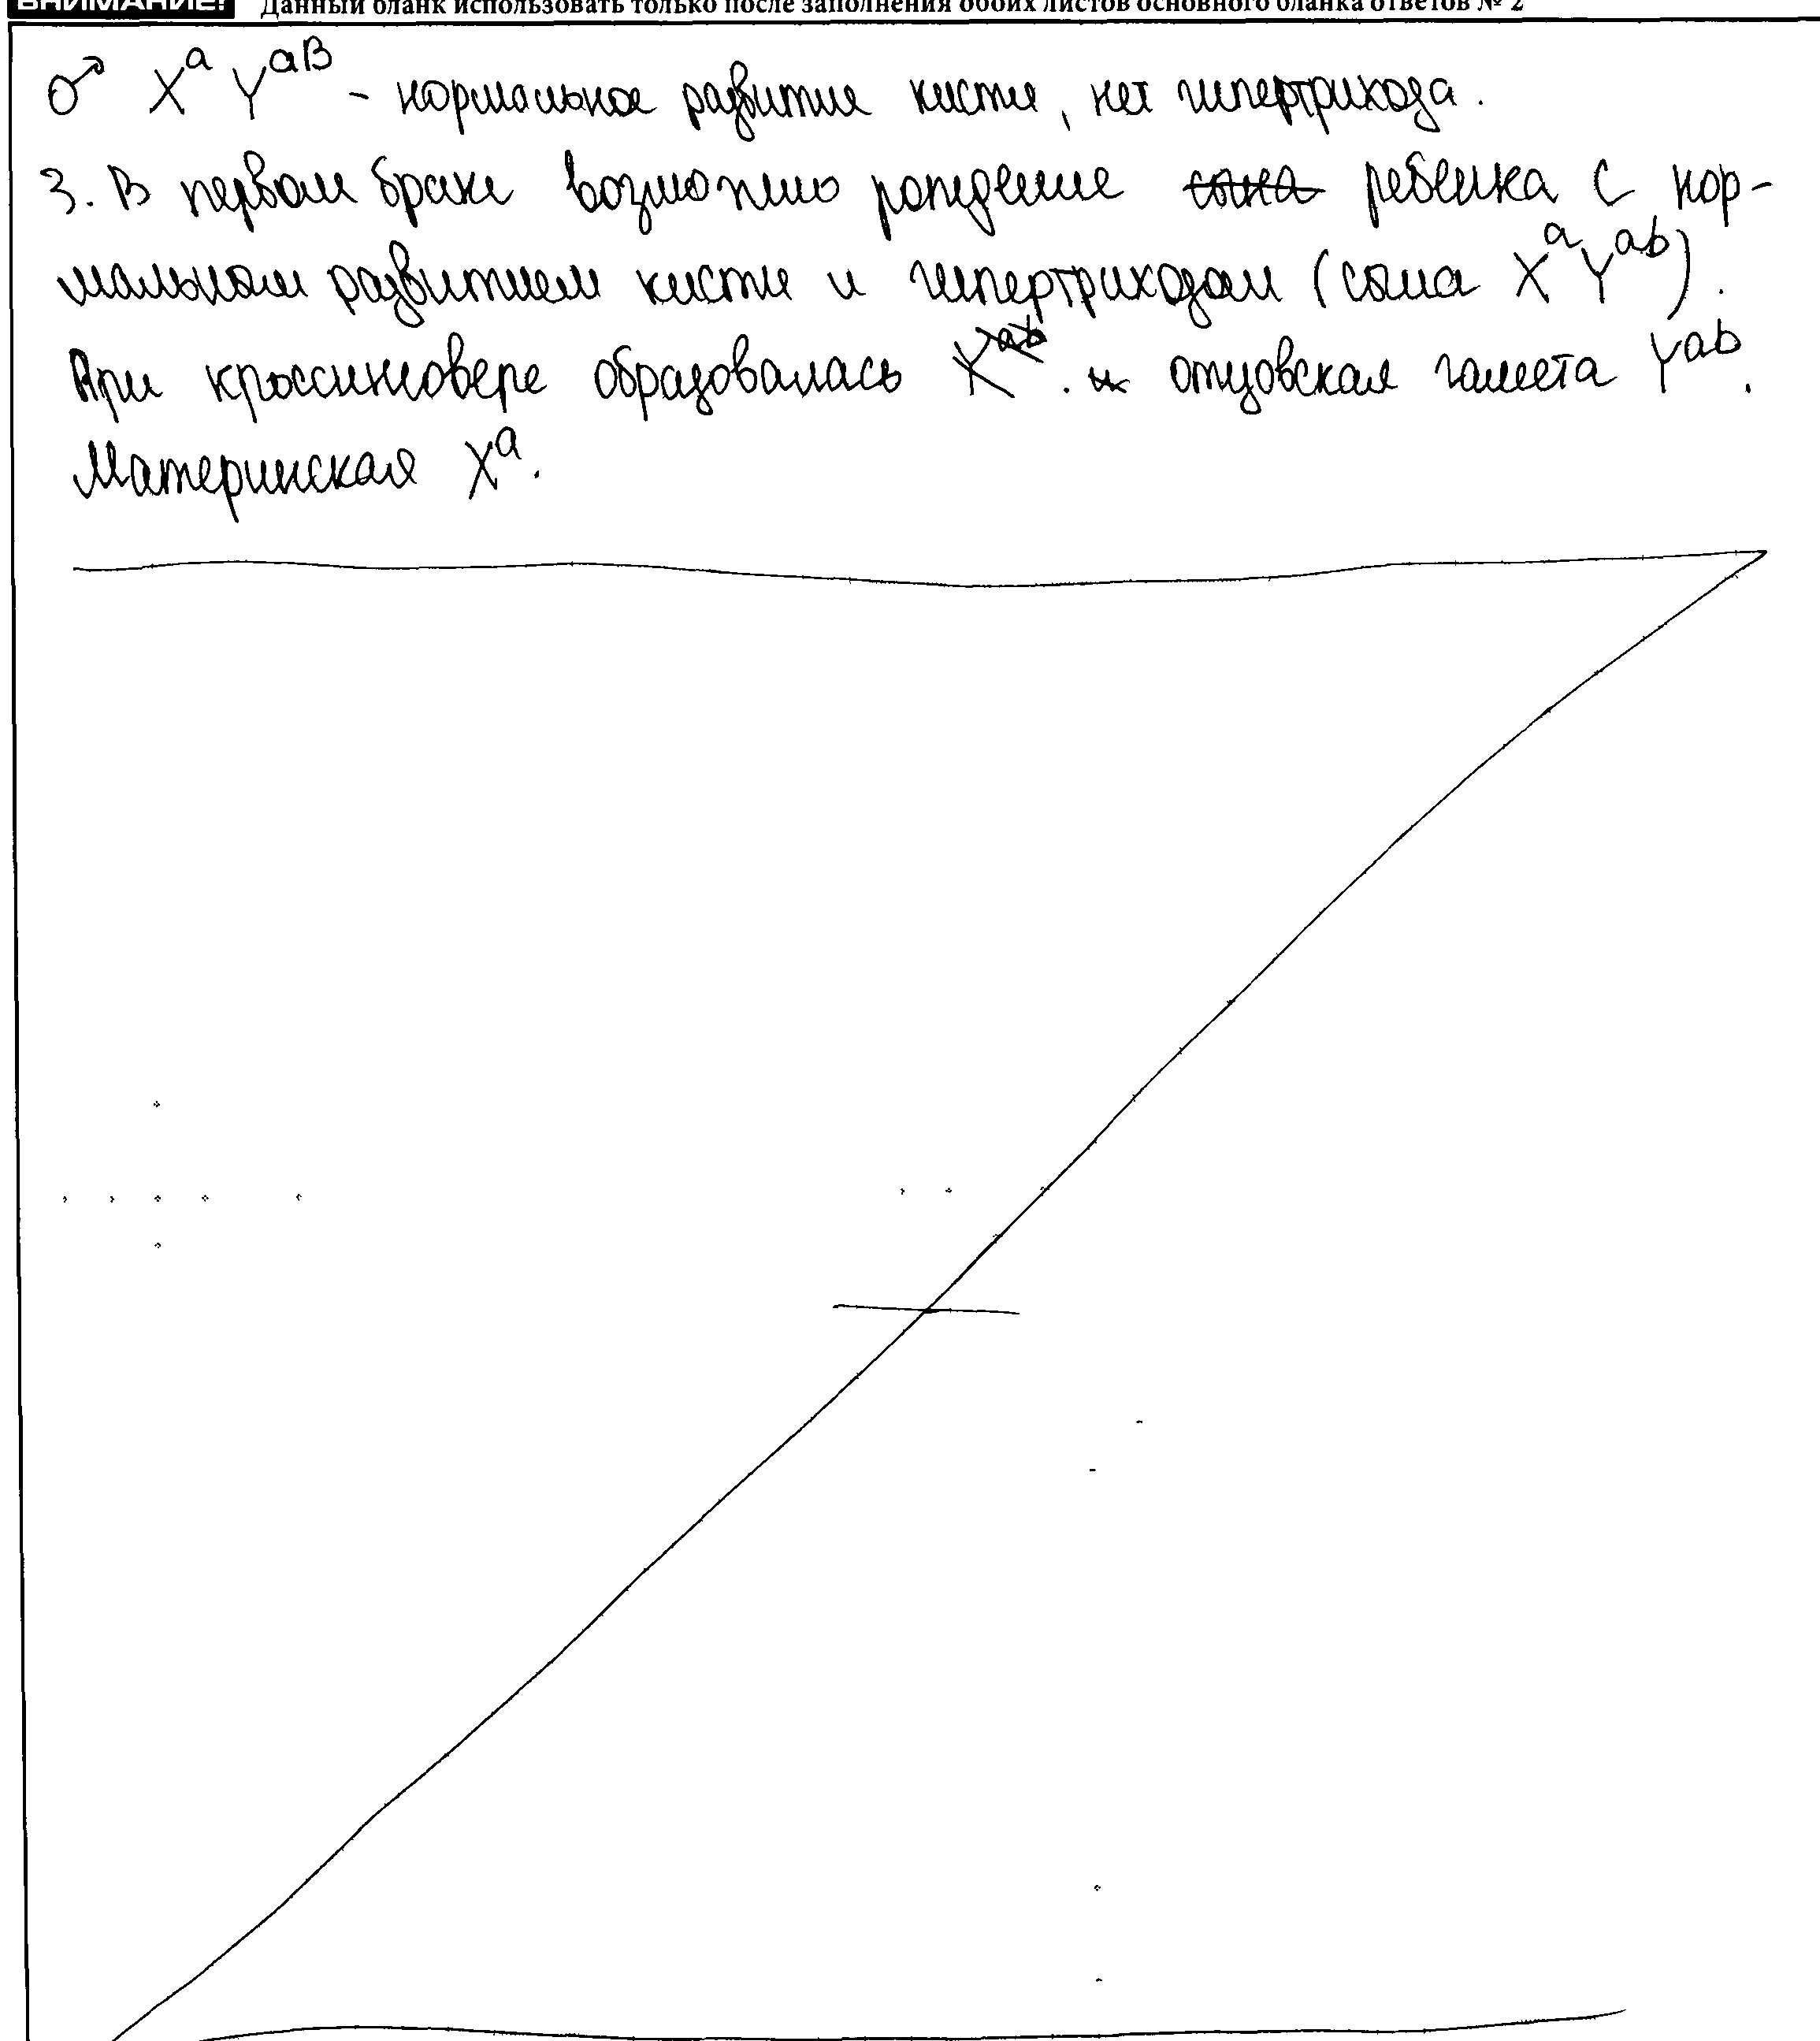 ВНИМАНИЕ! Данный бланк использовать только после заполнения обоих листов основного бланка ответов № 2
♂ XᵃYᵃᴮ - нормальное развитие кисти, нет гипертрихоза.
3. В первом браке возможно рождение сына ребенка с нор-
мальном развитием кисти и гипертрихозом (сына XᵃYᵃᵇ).
При кроссинговере образовалась Xᵃᵇ. и отцовская гамета Yᵃᵇ.
Материнская Xᵃ.